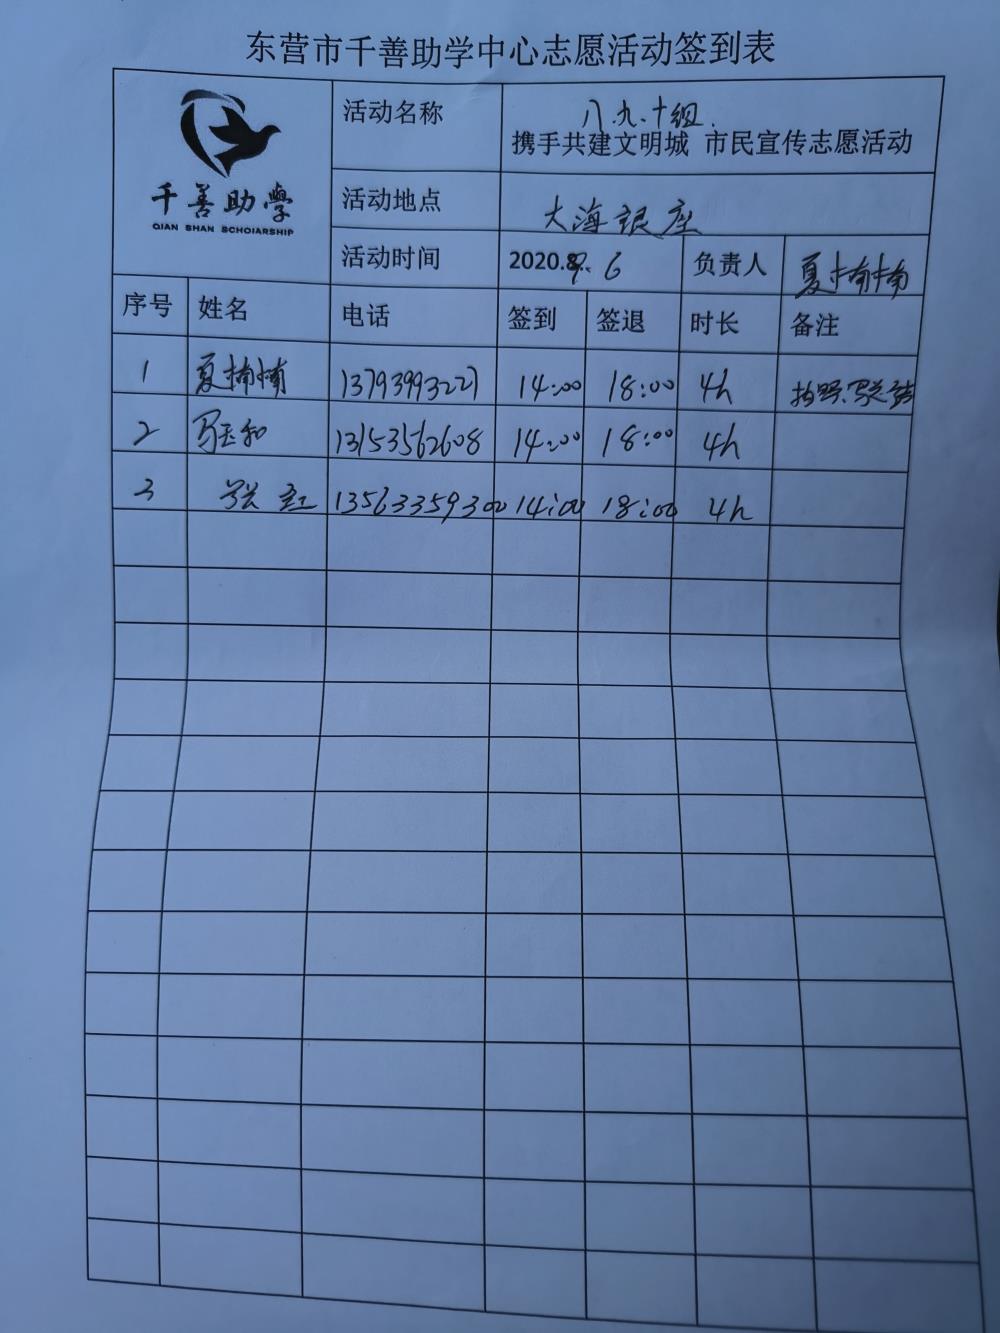 东营市千善助学中心志愿活动签到表
千善助學
QIAN SHAN SCHOIARSHIP
活动名称 八.九.十组.
携手共建文明城 市民宣传志愿活动
活动地点 大海银座
活动时间 2020.9.6 负责人 夏楠楠
序号 姓名 电话 签到 签退 时长 备注
1 夏楠楠 13793993227 14:00 18:00 4h 拍照.写总结
2 13153562608 14:00 18:00 4h
3 张红 13563359300 14:00 18:00 4h